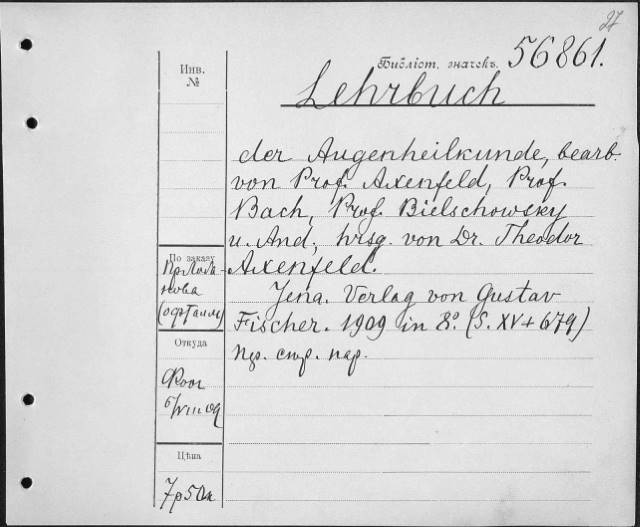 27
Инв.
№
Библіот. значекъ. 56861.
Lehrbuch
der Augenheilkunde, bearb.
von Prof. Axenfeld, Prof.
Bach, Prof. Bielschowsky
u. And., hrsg. von Dr. Theodor
Axenfeld.
Jena. Verlag von Gustav
Fischer. 1909 in 8º. (S. XV + 679)
пар.
По заказу
нова
(офталм)
Откуда
6/VIII 09
Цѣна
7р50к